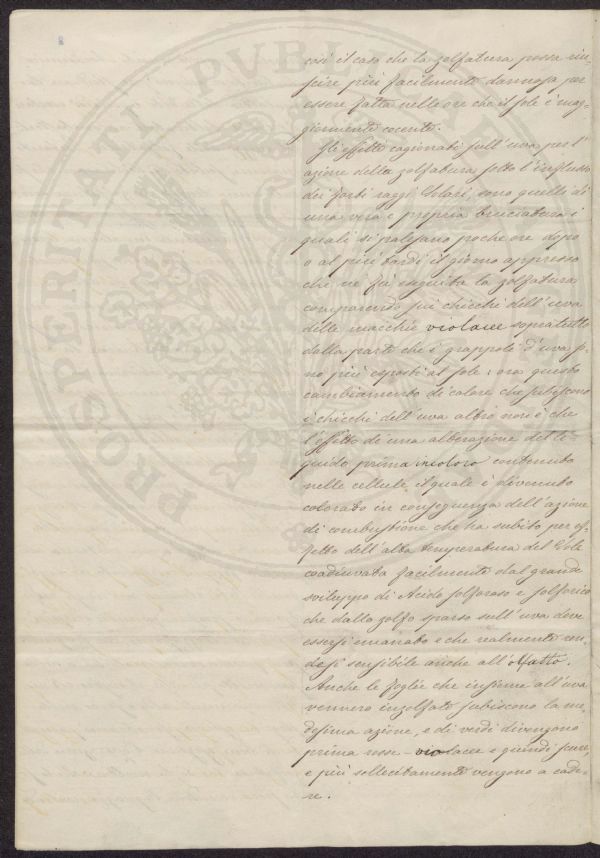 così il caso che la zolfatura possa riu-
scire più facilmente dannosa per
essere fatta nelle ore che il sole è mag-
giormente cocente.
Gli effetti cagionati sull'uva per l'
azione della zolfatura sotto l'influsso
dei forti raggi Solari, sono quelli di
una vera e propria bruciatura i
quali si palesano poche ore dopo
o al più tardi il giorno appresso
che ne fu eseguita la zolfatura
comparendo sui chicchi dell'uva
delle macchie violacee sopratutto
dalla parte che i grappoli d'uva so-
no più esposti al sole: ora questo
cambiamento di colore che subiscono
i chicchi dell'uva altro non è che
l'effetto di una alterazione del li-
quido prima incoloro contenuto
nelle cellule, il quale è divenuto
colorato in conseguenza dell'azione
di combustione che ha subito per ef-
fetto dell'alta temperatura del Sole
coadiuvata facilmente dal grande
sviluppo di Acido solforoso e solforico
che dallo zolfo sparso sull'uva deve
essersi emanato e che realmente ren-
desi sensibile anche all'olfatto.
Anche le foglie che insieme all'uva
vennero inzolfate subiscono la me-
desima azione, e di verdi divengono
prima rosse-violacee e quindi scure,
e più sollecitamente vengono a cade-
re.
PROSPERITATI PVBLICAE